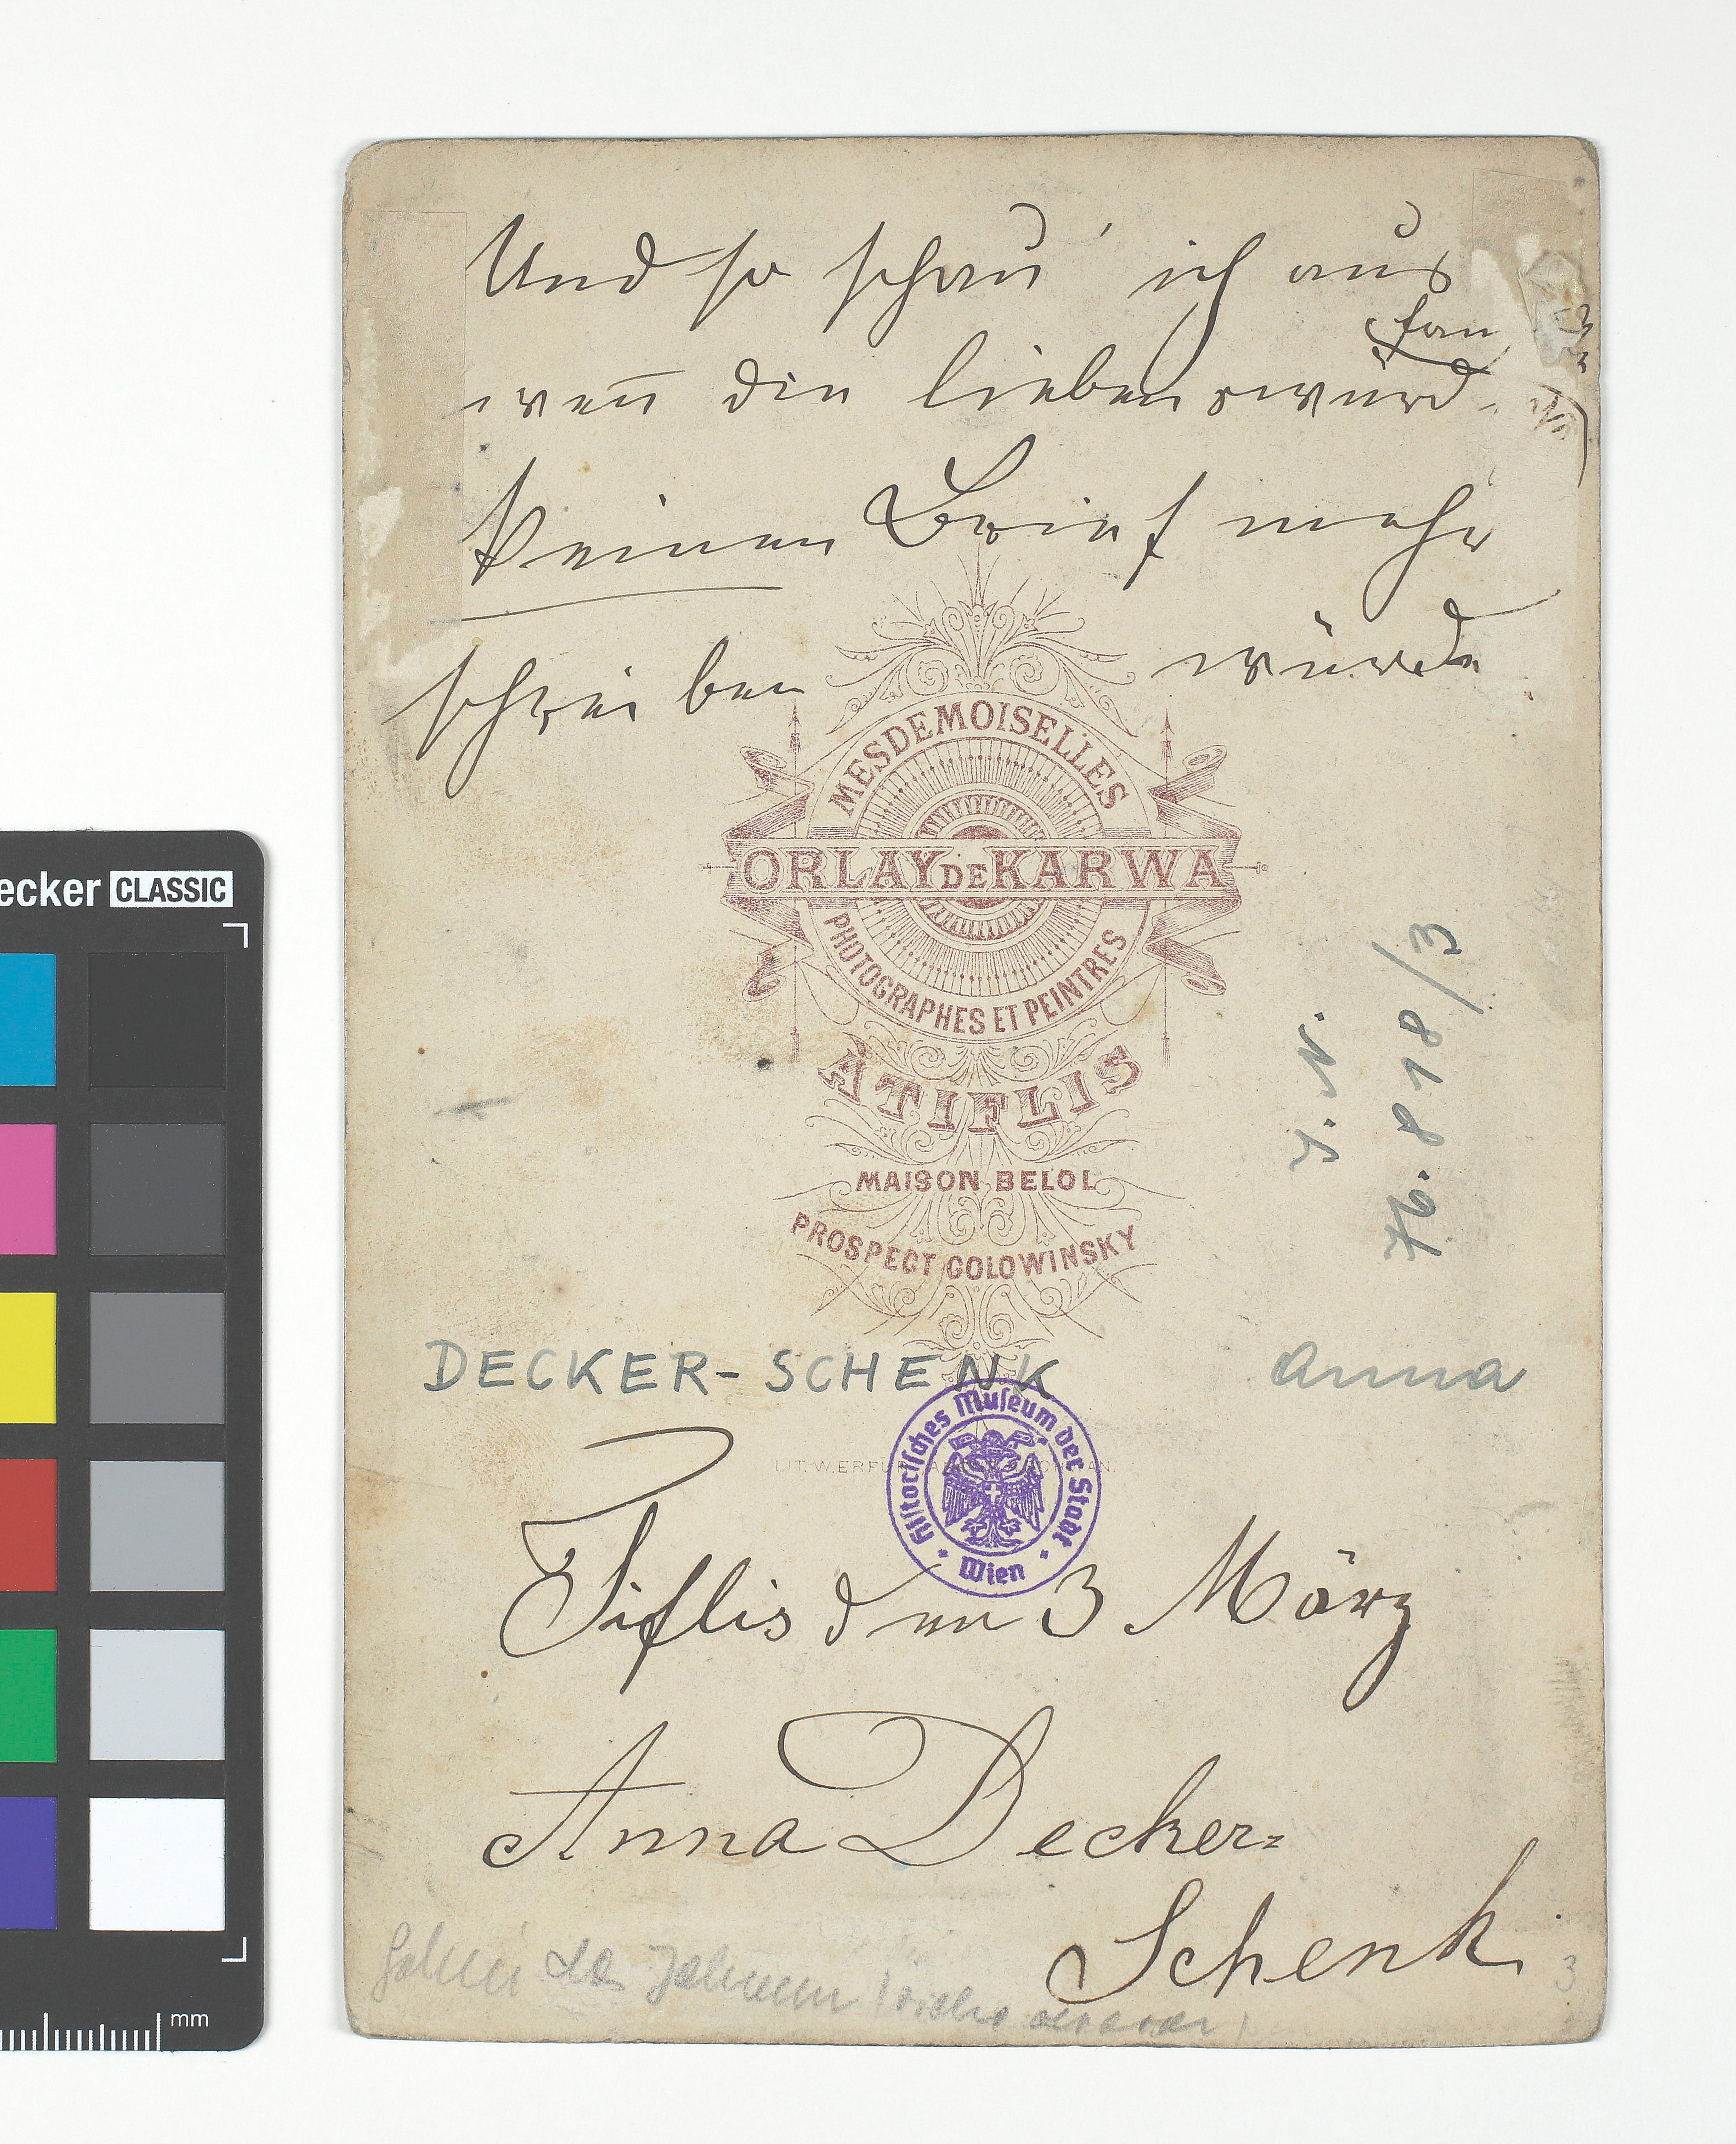 Und so schau' ich aus
wen̄ die liebenswürd.
keinen Brief mehr
schreiben würde
MESDEMOISELLES
ORLAY DE KARWA
PHOTOGRAPHES ET PEINTRES
À TIFLIS
MAISON BELOL
PROSPECT GOLOWINSKY
I. N.
76.818/3
DECKER-SCHENK Anna
LIT. W. ERFU
Historisches Museum der Stadt Wien
Tiflis den 3 März
Anna Decker-
Schenk
3
ecker CLASSIC
mm